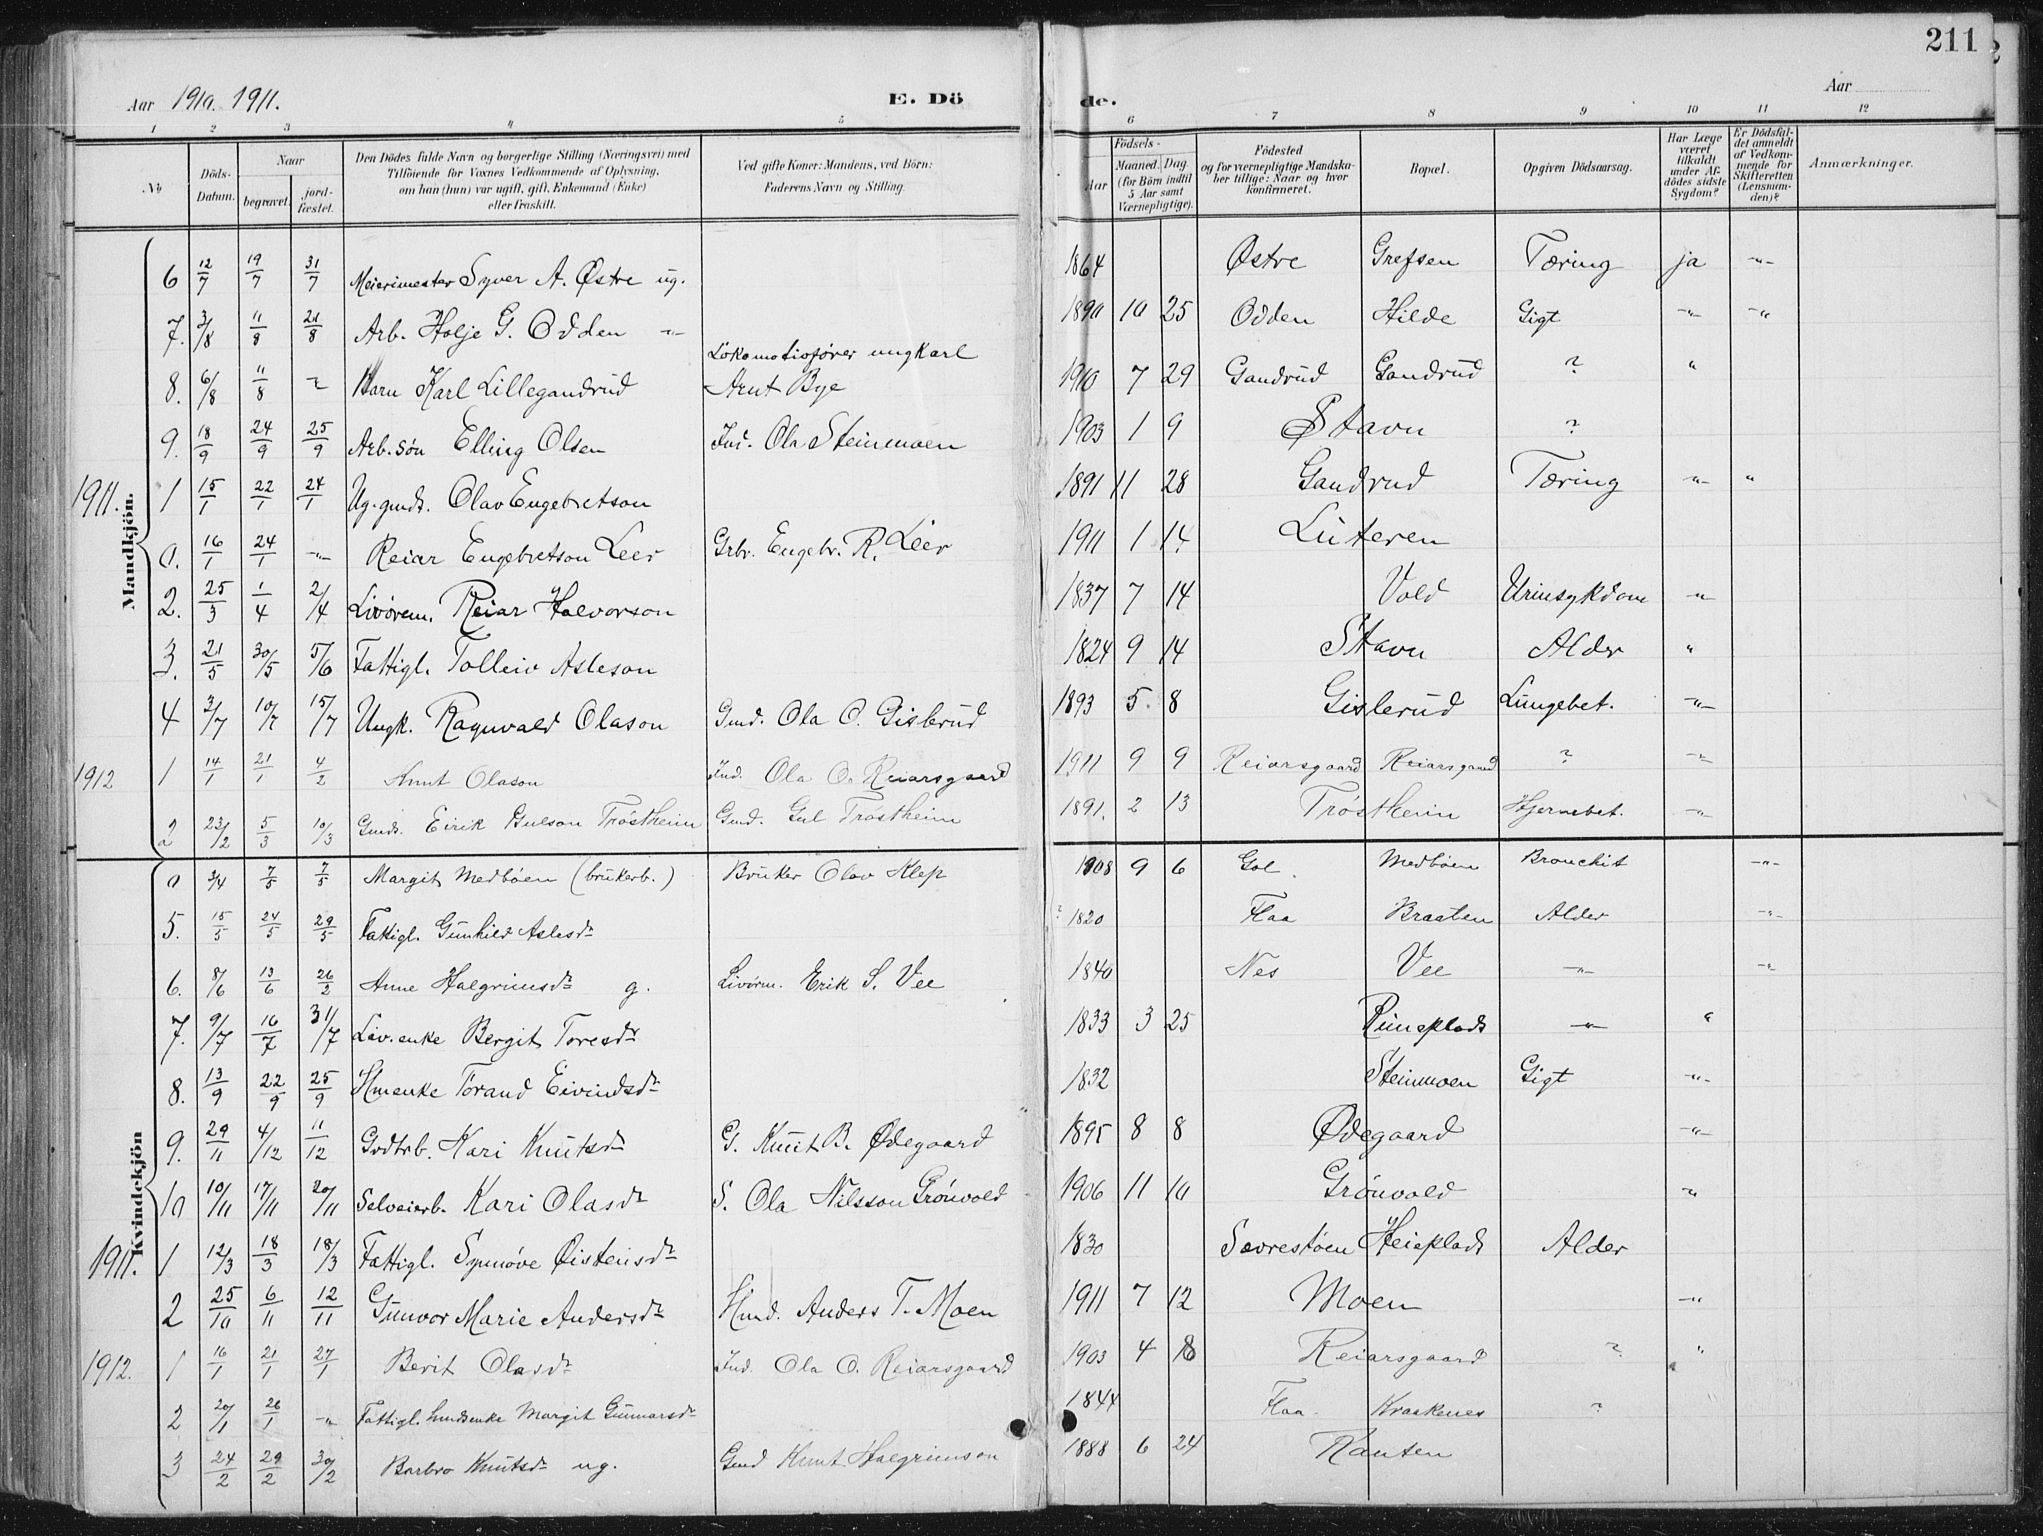 211
Aar 1910. 1911.
E. Dö
de.
Aar
1 2 3 4 5 6 7 8 9 10 11 12
No
Döds-Datum.
Naar
begravet.
jord-fæstet.
Den Dödes fulde Navn og borgerlige Stilling (Næringsvei) med
Tilföiende for Voxnes Vedkommende af Oplysning,
om han (hun) var ugift, gift, Enkemand (Enke)
eller fraskilt.
Ved gifte Koner: Mandens, ved Börn:
Faderens Navn og Stilling.
Födsels-
Aar
Maaned. Dag.
(for Börn indtil 5 Aar samt Værnepligtige).
Födested
og for værnepligtige Mandskaber tillige: Naar og hvor konfirmeret.
Bopæl.
Opgiven Dödsaarsag.
Har Læge været tilkaldt under Afdödes sidste Sygdom?
Er Dödsfaldet anmeldt af Vedkommende for Skifteretten (Lensmanden)?
Anmærkninger.
Mandkjön.
6 12/7 19/7 31/7 Meierimester Syver A. Østre ug. 1864 Østre Grefsen Tæring ja -"-
7. 3/8 11/8 21/8 Arb. Holje G. Odden -"- 1890 10 25 Odden Hilde Gigt -"- -"-
Lokomotivfører ungkarl
8. 6/8 11/8 Barn Karl Lillegandrud Arnt Bye 1910 7 29 Gandrud Gandrud ? "
9. 18/9 24/9 25/9 Arb. søn Elling Olsen Ind. Ola Steinmoen 1903 1 9 Stavn ?
1911. 1 15/1 22/1 24/1 Ug. gmds. Olav Engebretson 1891 11 28 Gandrud Tæring -"- "
0. 16/1 24/1 -"- Reiar Engebretson Leer Grbr. Engebr. R. Leer 1911 1 14. Luteren
2. 25/3 1/4 2/4 Livørem. Reiar Halvorson 1837 7 14 Vold Urinsykdom -"-
3. 21/5 30/5 5/6 Fattigl. Tolleiv Asleson 1824 9 14 Stavn Alder "
4 3/7 10/7 15/7 Ungk. Ragnvald Olason Gmd. Ola O. Gislerud 1893 5. 8 Gislerud Lungebet. -"-
1912 1 14/1 21/1 4/2 Knut Olason Ind. Ola O. Reiarsgaard 1911 9 9 Reiarsgaard Reiarsgaard ? -"-
2 23/2 5/3 10/3 Gmds. Eirik Gulson Trøstheim Gmd. Gul Trøstheim 1891. 2 13 Trøstheim Hjernebet. -"-
Kvindekjön
0 3/4 7/5 7/5 Margit Medbøen (brukerb.) Bruker Olav Klep 1908 9 6 Gol. Medbøen Bronchit -"-
5. 15/5 24/5 29/5 Fattigl. Gunhild Aslesdr ? 1820 Flaa Braaten Alder -"-
6. 8/6 13/6 26/2 Anne Halgrimsdr g. Livørm. Erik S. Vee 1840 Nes Vee -"- -"-
7. 9/7 16/7 31/7 Lav. enke Bergit Toresdr 1833 3 25 Runeplads -"- "
8. 13/9 22/9 25/9 Hmenke Torand Eivindsdr 1832 Steinmoen Gigt -"-
9. 29/11 4/12 11/12 Grdbrb. Kari Knutsdr G. Knut B. Ødegaard 1895 8 8 Ødegaard -"-
10 10/11 17/11 20/11 Selveierb. Kari Olasdr S. Ola Nilsson Grønvold 1906 11 10 Grønvold -"-
1911. 1 12/3 18/3 18/3 Fattigl. Synnøve Øistensdr 1830 Sevrestøen Heieplads Alder
2 25/10 6/11 12/11 Gunvor Marie Andersdr Hmd. Anders T. Moen 1911 7 12 Moen -"-
1912. 1 16/1 21/1 27/1 Berit Olasdr Ind. Ola O. Reiarsgaard 1903 4 18 Reiarsgaard ? "
2 20/1 26/1 -"- Fattigl. Indsenke Margit Gunnarsdr 1844 Flaa. Kraakenes ?
3 24/2 29/2 30/2 Barbro Knutsdr ug. Gmd Knut Halgrimson 1888 6 24 Kanten